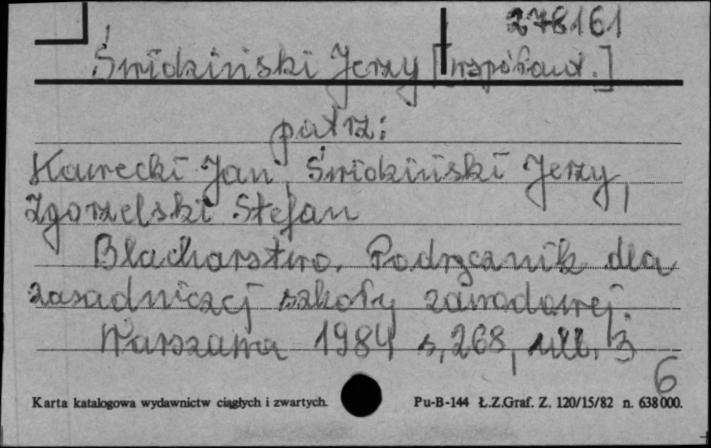 278161
Świdziński Jerzy [współaut.]
patrz:
Kawecki Jan, Świdziński Jerzy,
Zgorzelski Stefan
Blacharstwo. Podręcznik dla
zasadniczej szkoły zawodowej.
Warszawa 1984 s, 268, nlb. 3
6
Karta katalogowa wydawnictw ciągłych i zwartych. Pu-B-144 Ł.Z.Graf. Z. 120/15/82 n. 638000.